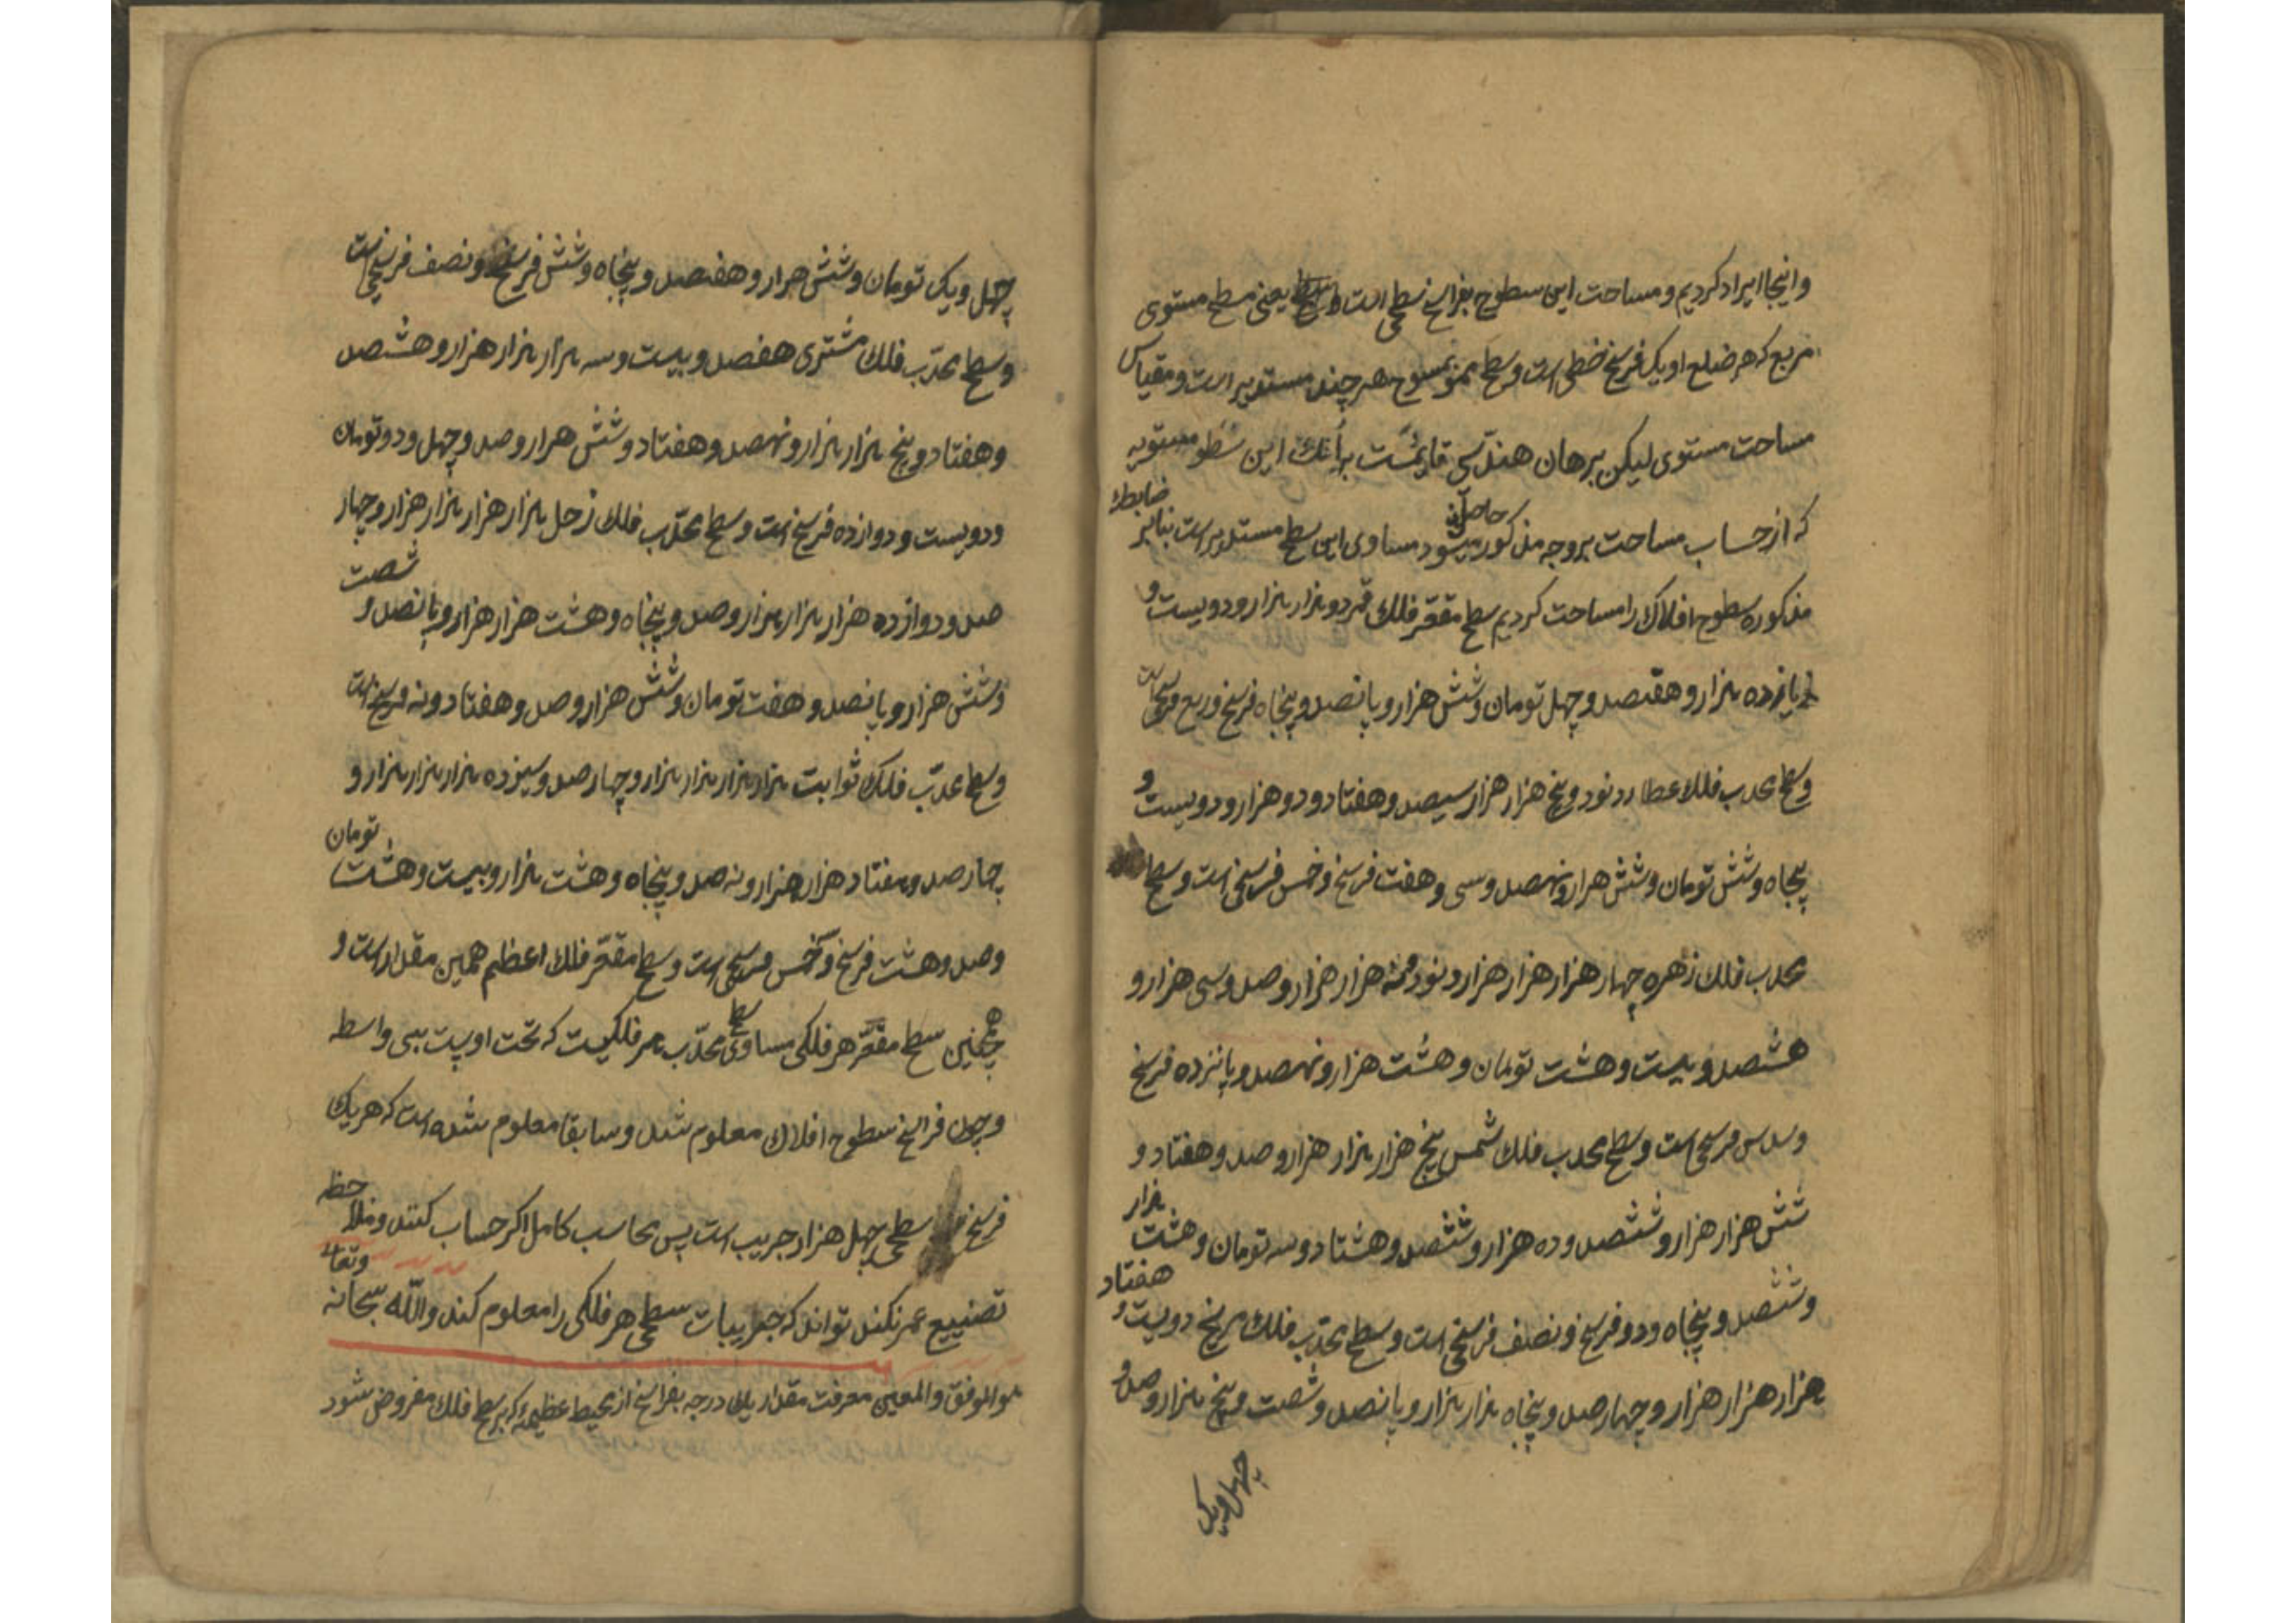 واینجا ایراد کردیم و مساحت این سطوح بفراسخ سطحی است یعنی سطح مستوی
مربع که هر ضلع او یک فرسخ خطی است و سطح ممسوح هر چند مستدیر است و مقیاس
مساحت مستوی لیکن برهان هندسی قایمست بر آنک این سطوح مستویه
که از حساب مساحت بر وجه مذکور حاصل میشود مساوی این سطح مستدیر است بنابر ضابطه
مذکوره سطوح افلاک را مساحت کردیم سطح مقعّر فلک قمر دو هزار هزار و دویست و
یازده هزار و هفتصد و چهل تومان و شش هزار و پانصد و پنجاه فرسخ و ربع فرسخی است
و سطح محدب فلک عطارد نود و پنج هزار هزار سیصد و هفتاد و دو هزار و دویست و
پنجاه و شش تومان و شش هزار و نهصد و سی و هفت فرسخ و خمس فرسخی است و سطح
محدب فلک زهره چهار هزار هزار هزار و نود و نه هزار هزار و صد و سی هزار و
هشتصد و بیست و هشت تومان و هشت هزار و نهصد و پانزده فرسخ
و سدس فرسخی است و سطح محدب فلک شمس پنج هزار هزار هزار و صد و هفتاد و
شش هزار هزار و ششصد و ده هزار و ششصد و هشتاد و سه تومان و هشت هزار
و ششصد و پنجاه و دو فرسخ و نصف فرسخی است و سطح محدّب فلک مریخ دویست و هفتاد
هزار هزار هزار و چهارصد و پنجاه هزار هزار و پانصد و شصت و پنج هزار و صد و
چهل و یک
چهل و یک تومان و شش هزار و هفتصد و پنجاه و شش فرسخ و نصف فرسخی است
و سطح محدّب فلک مشتری هفصد و بیست و سه هزار هزار هزار و هشتصد
و هفتاد و پنج هزار هزار و نهصد و هفتاد و شش هزار و صد و چهل و دو تومان
و دویست و دوازده فرسخ است و سطح محدّب فلک زحل هزار هزار هزار هزار و چهار
صد و دوازده هزار هزار هزار و صد و پنجاه و هشت هزار هزار و پانصد و شصت
و شش هزار و پانصد و هفت تومان و شش هزار و صد و هفتاد و نه فرسخ است
و سطح محدّب فلک ثوابت هزار هزار هزار هزار و چهار صد و سیزده هزار هزار هزار و
چهار صد و هفتاد هزار هزار و نه صد و پنجاه و هشت هزار و بیست و هشت تومان
و صد و هشت فرسخ و خمس فرسخی است و سطح مقعّر فلک اعظم همین مقدار است و
همچنین سطح مقعّر هر فلکی مساوی سطح محدّب هر فلکیست که تحت اوست بی واسطه
و چون فراسخ سطوح افلاک معلوم شد و سابقا معلوم شده است که هر یک
فرسخ سطحی چهل هزار جریب است پس محاسب کامل اگر حساب کند و ملاحظه
تضییع عمر نکند تواند که جریبات سطحی هر فلکی را معلوم کند والله سبحانه وتعالی
هو الموفق والمعین معرفت مقدار یک درجه بفراسخ از محیط عظیمه که بر سطح فلک مفروض شود